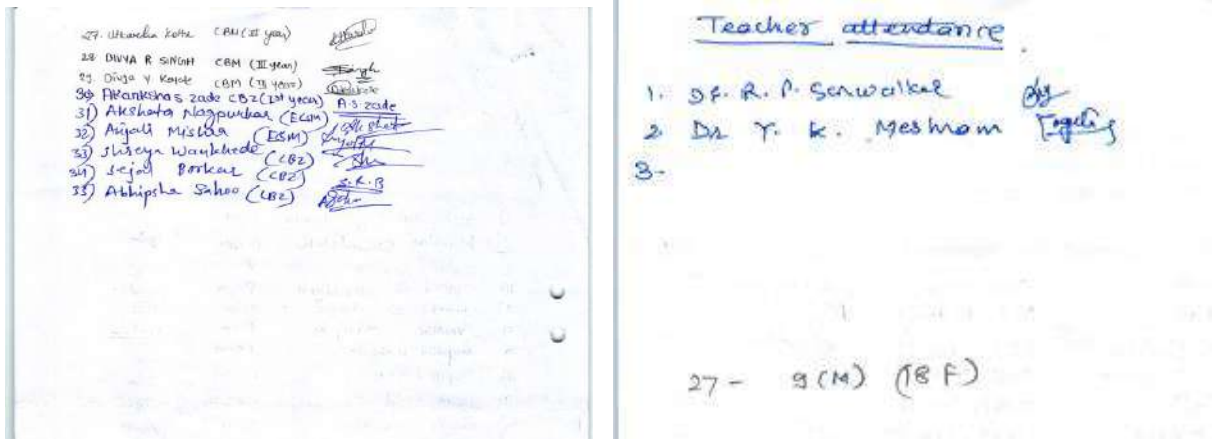 27. Utkarsha Kothe CBM (II year)
28 DIVYA R SINGH CBM (III year) Singh
29. Divya Y Kapte CBM (II year)
30) Akanksha S zade CBZ (Ist year) A.S.zade
31) Akshata Nagpurkar (ECSM)
32) Anjali Mishra (ESM)
33) Shreya Wankhede (CBZ)
34) Sejal Borkar (CBZ) S.R.B
35) Abhipsha Sahoo (CBZ)
Teacher attendance
1. Dr. R. P. Sarwalkar
2 Dr Y. K. Meshram
3-
27 - 9 (M) (18 F)